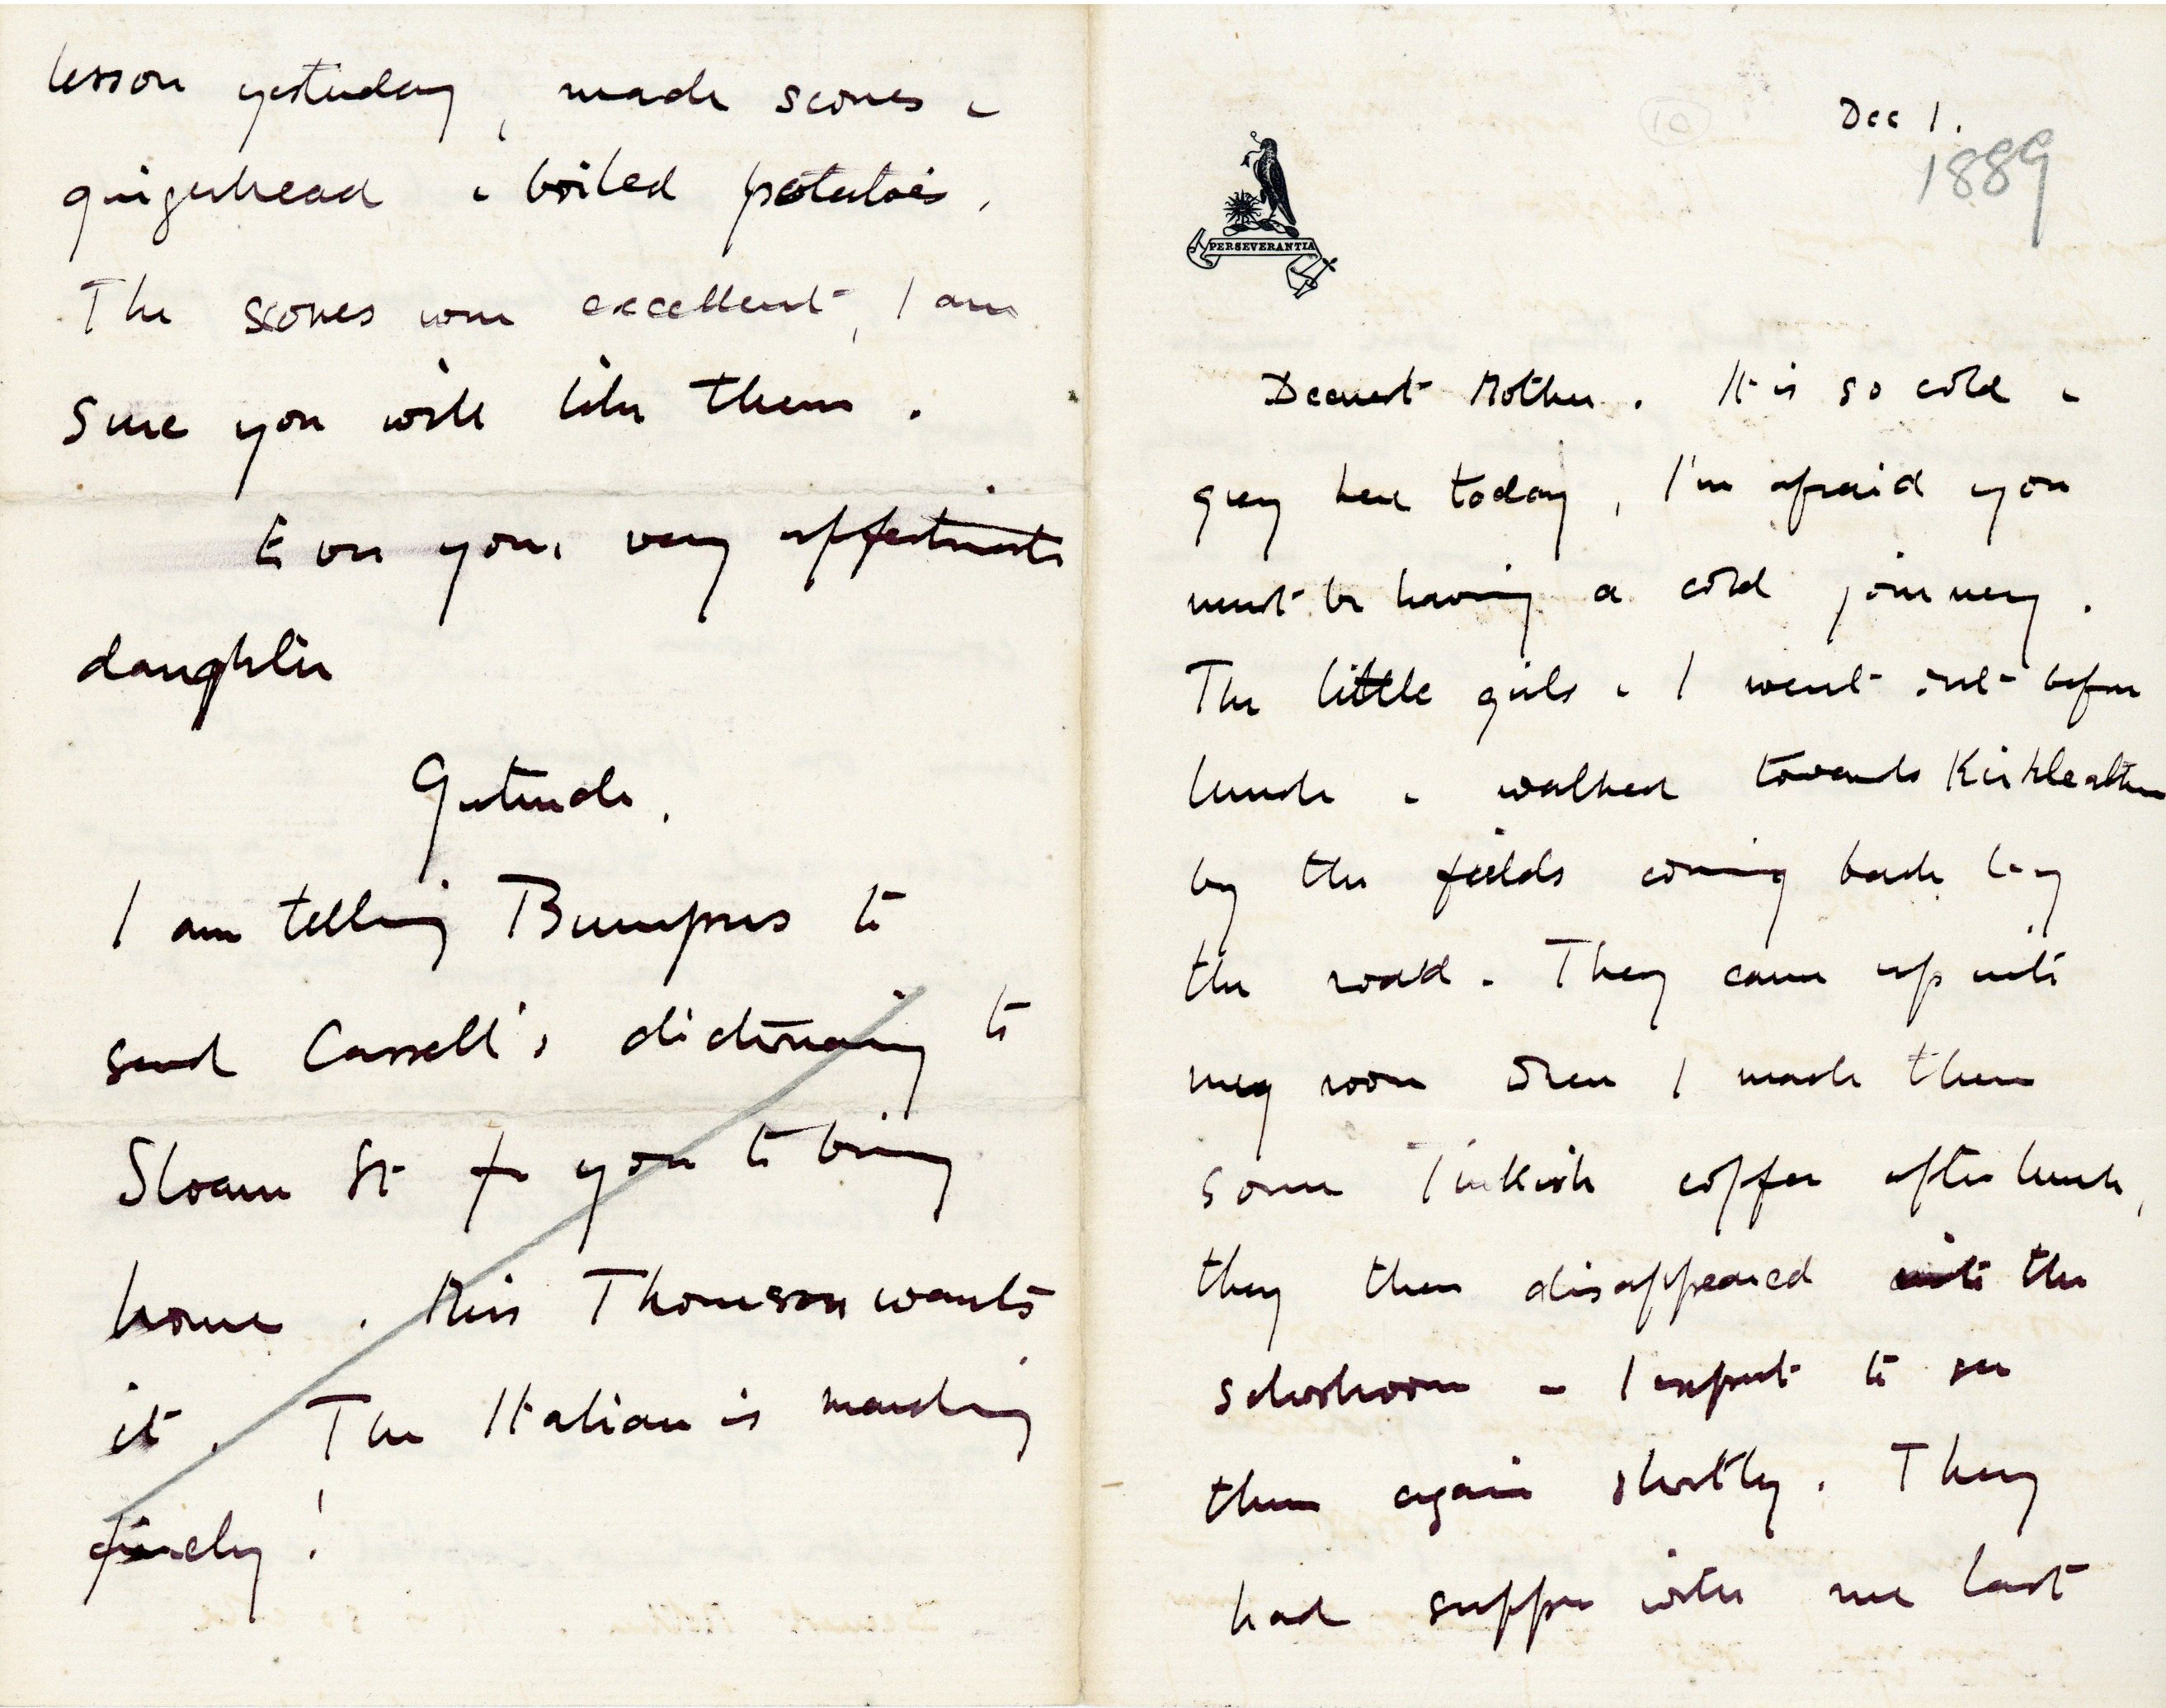 Dec 1.
1889
10
PERSEVERANTIA
Dearest Mother. It is so cold &
grey here today, I'm afraid you
must be having a cold journey.
The little girls & I went out before
lunch & walked towards Kirkleatham
by the fields coming back by
the road. They came up into
my room when I made them
some Turkish coffee after lunch,
they then disappeared into the
schoolroom - I expect to see
them again shortly. They
had supper with me last
lesson yesterday, made scones &
gingerbread & boiled potatoes.
The scones were excellent, I am
sure you will like them.
Ever your very affectionate
daughter
Gertrude.
I am telling Bumpus to
send Cassell's dictionary to
Sloane St for you to bring
home. Miss Thomson wants
it. The Italian is marching
finely!